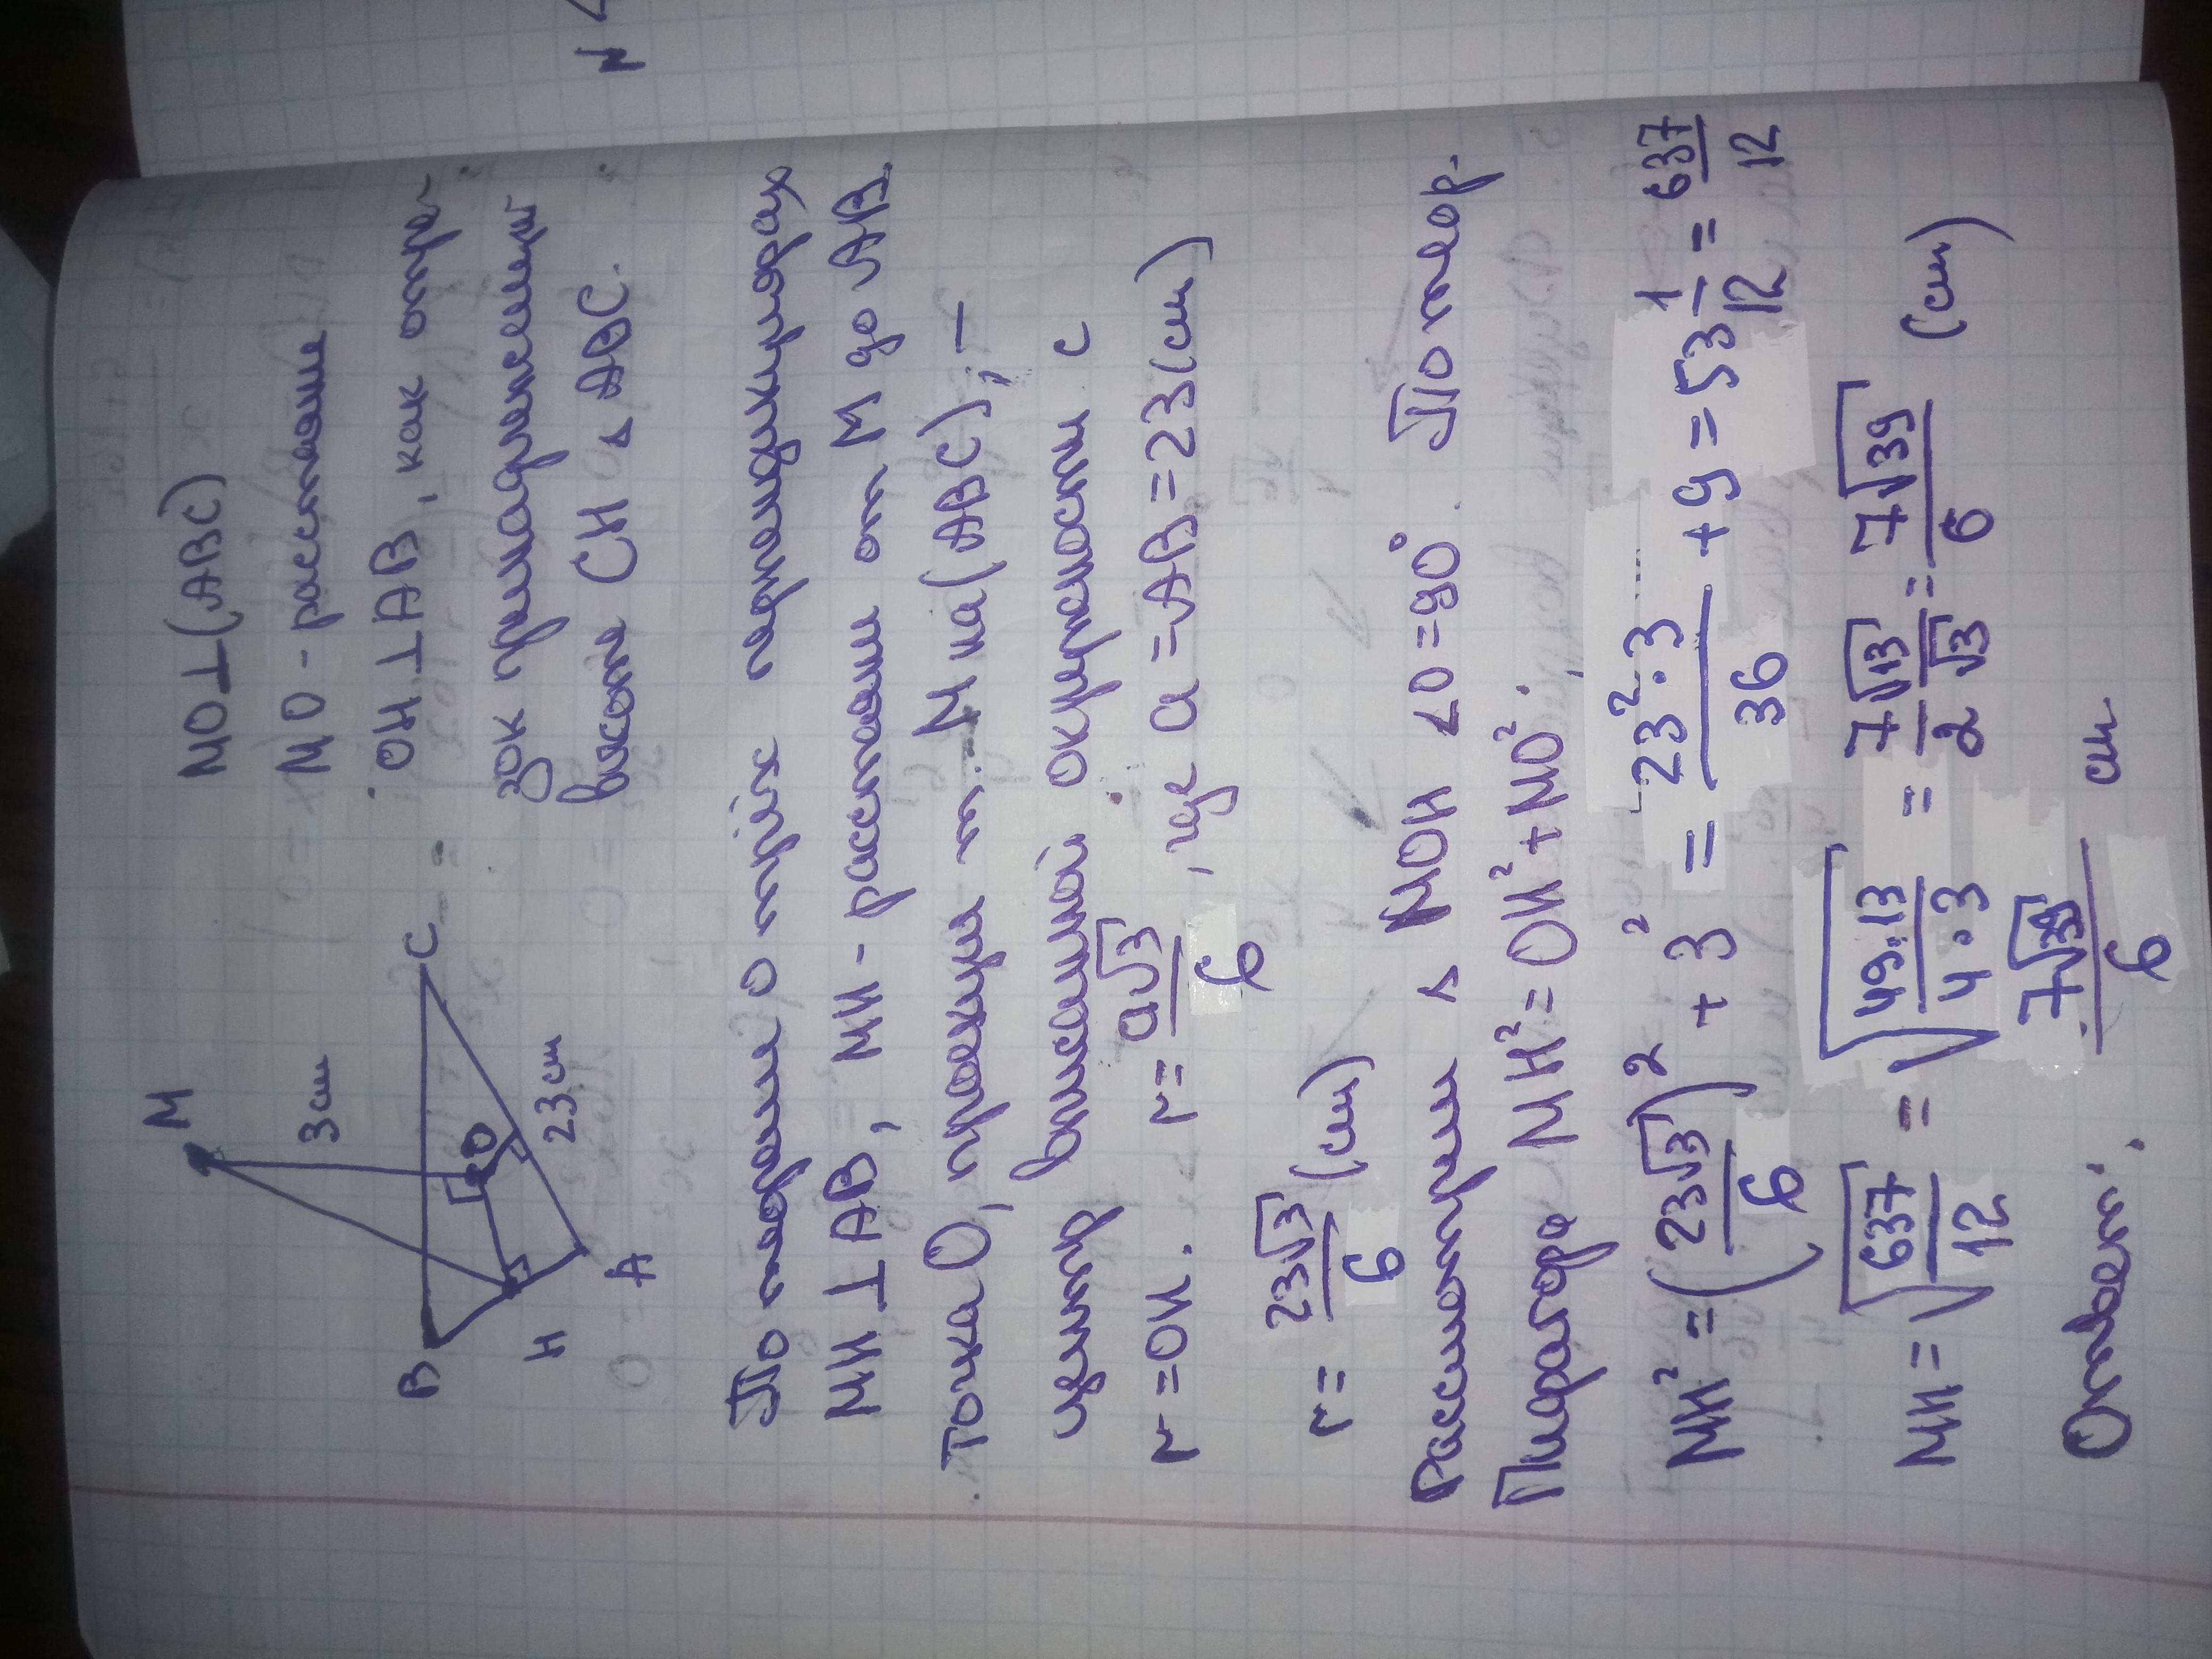 N
M
3 см
B
C
O
H
A
23 см
MO⊥(ABC)
MO - расстояние
OH ⊥ AB, как отре-
зок принадлежащий
высоте CH △ ABC.
По теореме о трёх перпендикулярах
MH ⊥ AB, MH - расстояние от M до AB.
Точка O, проекция т. M на (ABC), -
центр вписанной окружности с
r = OH. r = a√3/6, где a = AB = 23 (см)
r = 23√3/6 (см)
Рассмотрим △ MOH ∠O = 90°. По теор.
Пифагора MH² = OH² + MO².
MH² = (23√3/6)² + 3² = 23²·3/36 + 9 = 53 1/12 = 637/12
MH = √(637/12) = √(49·13/4·3) = 7√13/2√3 = 7√39/6 (см)
Ответ: 7√39/6 см